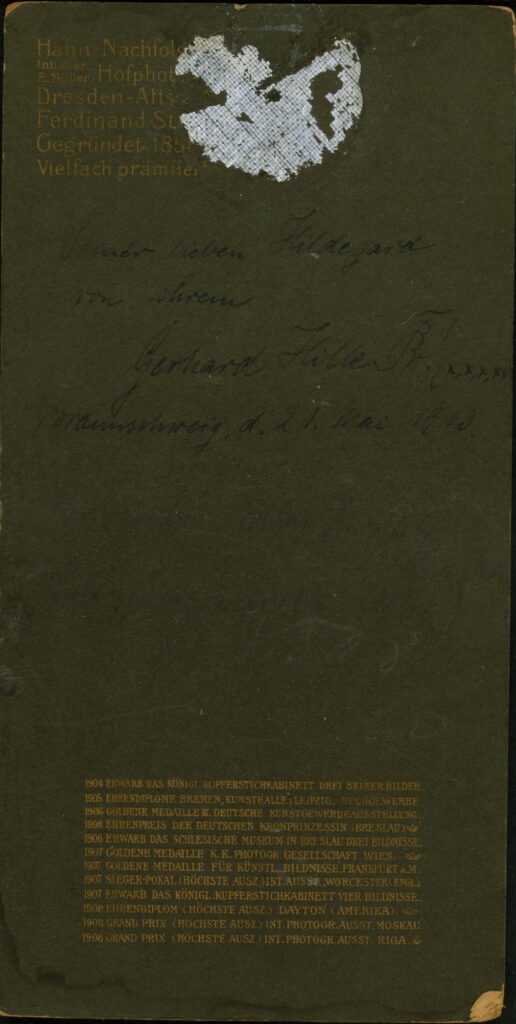 Hahn Nachfolg
Inhaber
E. Müller Hofphot
Dresden-Alts
Ferdinand-St
Gegründet 185
Vielfach prämiier
Seiner lieben Hildegard
von ihrem
Gerhard Hille
Braunschweig, d. 21. Mai 1913.
1904 ERWARB DAS KÖNIGL. KUPFERSTICHKABINETT DREI SEINER BILDER
1905 EHRENDIPLOME BREMEN, KUNSTHALLE; LEIPZIG, BUCHGEWERBE
1906 GOLDENE MEDAILLE III. DEUTSCHE KUNSTGEWERBEAUSSTELLUNG
1906 EHRENPREIS DER DEUTSCHEN KRONPRINZESSIN (BRESLAU)
1906 ERWARB DAS SCHLESISCHE MUSEUM IN BRESLAU DREI BILDNISSE.
1907 GOLDENE MEDAILLE K.K. PHOTOGR. GESELLSCHAFT WIEN.
1907 GOLDENE MEDAILLE FÜR KÜNSTL. BILDNISSE, FRANKFURT a.M.
1907 SIEGER-POKAL (HÖCHSTE AUSZ.) INT. AUSST. WORCESTER (ENGL.)
1907 ERWARB DAS KÖNIGL. KUPFERSTICHKABINETT VIER BILDNISSE.
1908 EHRENDIPLOM (HÖCHSTE AUSZ.) DAYTON (AMERIKA).
1908 GRAND PRIX (HÖCHSTE AUSZ.) INT. PHOTOGR. AUSST. MOSKAU.
1908 GRAND PRIX (HÖCHSTE AUSZ.) INT. PHOTOGR. AUSST. RIGA.